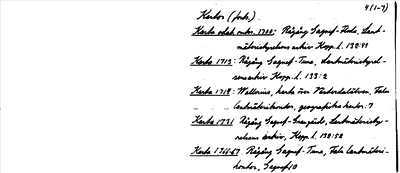 9(1-7)
Kartor (forts.)
Karta odat. omkr. 1700: Rågång Sagmyr-Floda, Lant-
mäteristyrelsens arkiv Kopp. l. 132:11
Karta 1713: Rågång Sagmyr-Tuna, Lantmäteristyrel-
sens arkiv Kopp. l. 133:2
Karta 1718: Wallerius, karta över Västerdalälven, Falu
lantmäterikontor, geografiska kartor: 7
Karta 1731 Rågång Sagmyr-Grangärde, Lantmäteristy-
relsens arkiv, Kopp. l. 132:52
Karta 1766-67 Rågång Sagmyr-Tuna, Falu lantmäteri-
kontor, Sagmyr 10